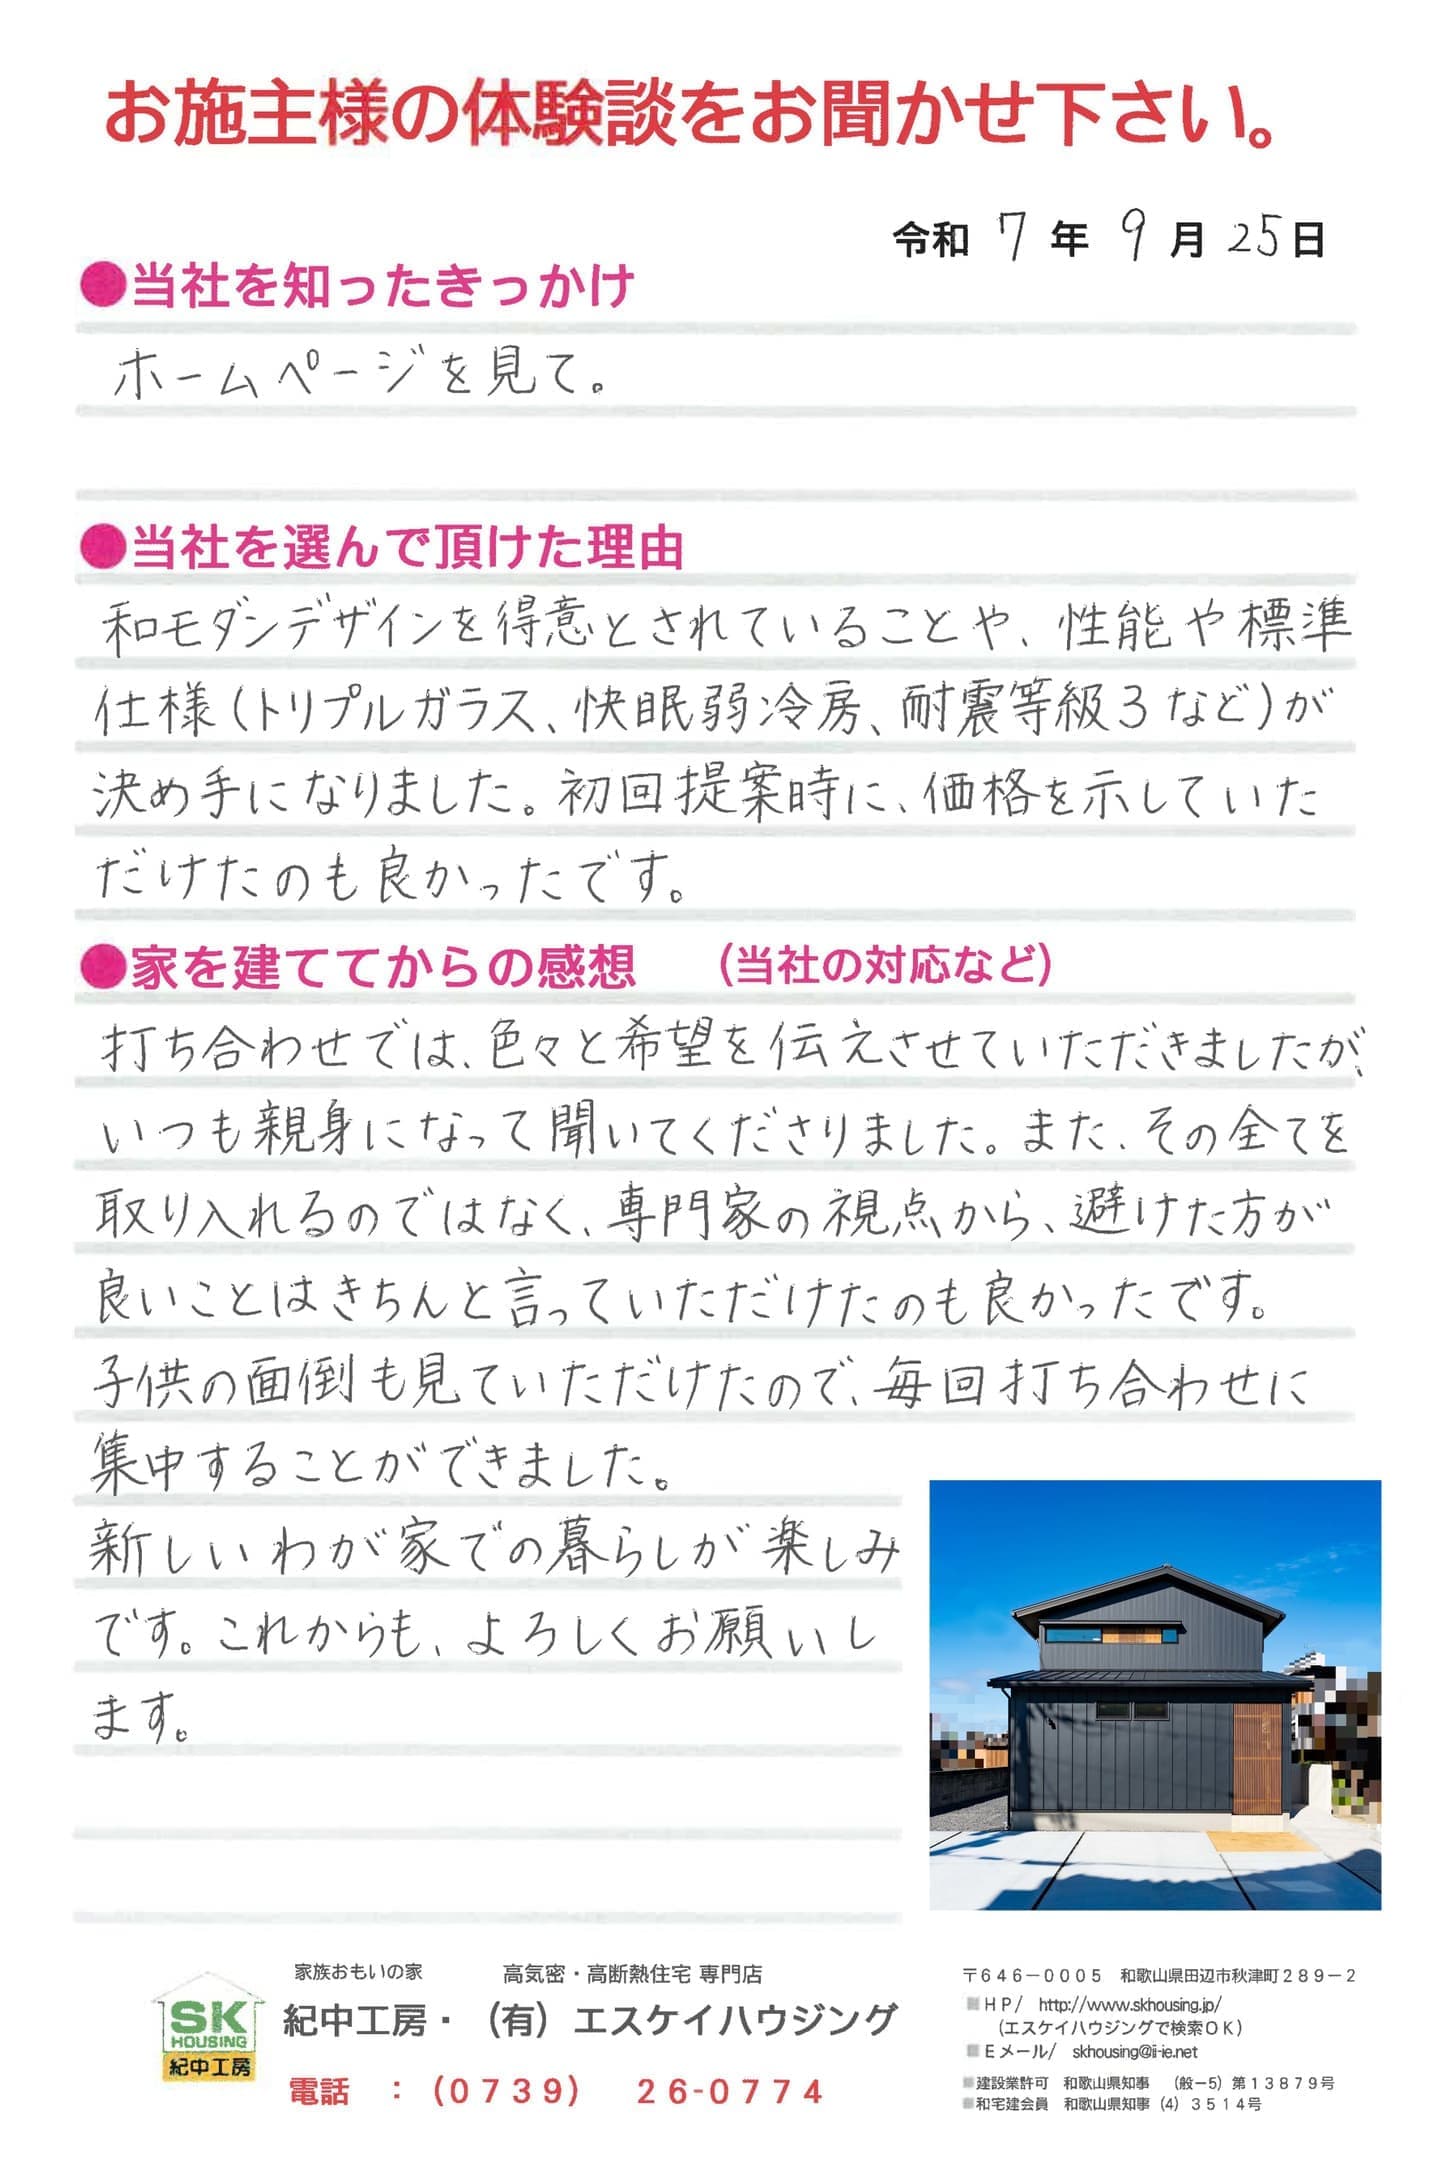 お施主様の体験談をお聞かせ下さい。
令和 7 年 9 月 25 日
●当社を知ったきっかけ
ホームページを見て。
●当社を選んで頂けた理由
和モダンデザインを得意とされていることや、性能や標準
仕様(トリプルガラス、快眠弱冷房、耐震等級3など)が
決め手になりました。初回提案時に、価格を示していた
だけたのも良かったです。
●家を建ててからの感想 (当社の対応など)
打ち合わせでは、色々と希望を伝えさせていただきましたが、
いつも親身になって聞いてくださりました。また、その全てを
取り入れるのではなく、専門家の視点から、避けた方が
良いことはきちんと言っていただけたのも良かったです。
子供の面倒も見ていただけたので、毎回打ち合わせに
集中することができました。
新しいわが家での暮らしが楽しみ
です。これからも、よろしくお願いし
ます。
SK
HOUSING
紀中工房
家族おもいの家 高気密・高断熱住宅 専門店
紀中工房・(有)エスケイハウジング
電話 :(0739) 26-0774
〒646-0005 和歌山県田辺市秋津町289-2
■HP/ http://www.skhousing.jp/
(エスケイハウジングで検索OK)
■Eメール/ skhousing@ii-ie.net
■建設業許可 和歌山県知事 (般-5)第13879号
■和宅建会員 和歌山県知事(4)3514号